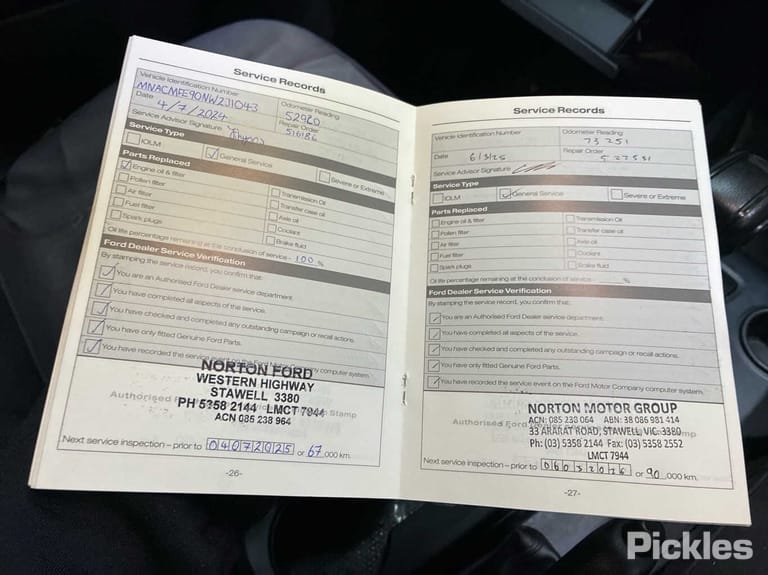 Service Records
Vehicle Identification Number
MNACMFE90NW2J1043
Odometer Reading
52920
Date 4/7/2024
Repair Order
516186
Service Advisor Signature
Service Type
IOLM
General Service
Severe or Extreme
Parts Replaced
Engine oil & filter
Pollen filter
Transmission Oil
Air filter
Transfer case oil
Fuel filter
Axle oil
Spark plugs
Coolant
Brake fluid
Oil life percentage remaining at the conclusion of service - 100 %
Ford Dealer Service Verification
By stamping the service record, you confirm that:
You are an Authorised Ford Dealer service department.
You have completed all aspects of the service.
You have checked and completed any outstanding campaign or recall actions.
You have only fitted Genuine Ford Parts.
You have recorded the service event on the Ford Motor Company computer system.
NORTON FORD
WESTERN HIGHWAY
STAWELL 3380
Authorised Stamp
PH 5358 2144 LMCT 7944
ACN 085 238 964
Next service inspection – prior to 04072025 or 67,000 km.
-26-
Service Records
Vehicle Identification Number
Odometer Reading
73 251
Date 6/3/25
Repair Order
527551
Service Advisor Signature
Service Type
IOLM
General Service
Severe or Extreme
Parts Replaced
Engine oil & filter
Transmission Oil
Pollen filter
Transfer case oil
Air filter
Axle oil
Fuel filter
Coolant
Spark plugs
Brake fluid
Oil life percentage remaining at the conclusion of service - %
Ford Dealer Service Verification
By stamping the service record, you confirm that:
You are an Authorised Ford Dealer service department.
You have completed all aspects of the service.
You have checked and completed any outstanding campaign or recall actions.
You have only fitted Genuine Ford Parts.
You have recorded the service event on the Ford Motor Company computer system.
NORTON MOTOR GROUP
ACN: 085 238 064 ABN: 38 086 981 414
Authorised Ford Stamp
33 ARARAT ROAD, STAWELL, VIC. 3380
Ph: (03) 5358 2144 Fax: (03) 5358 2552
LMCT 7944
Next service inspection – prior to 06032026 or 90,000 km.
-27-
Pickles